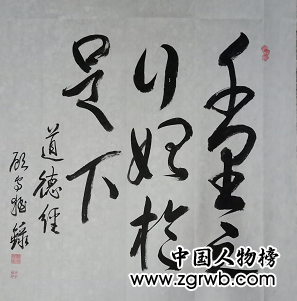 千里之
行始於
足下
道德经
中国人物榜
www.zgrwb.com